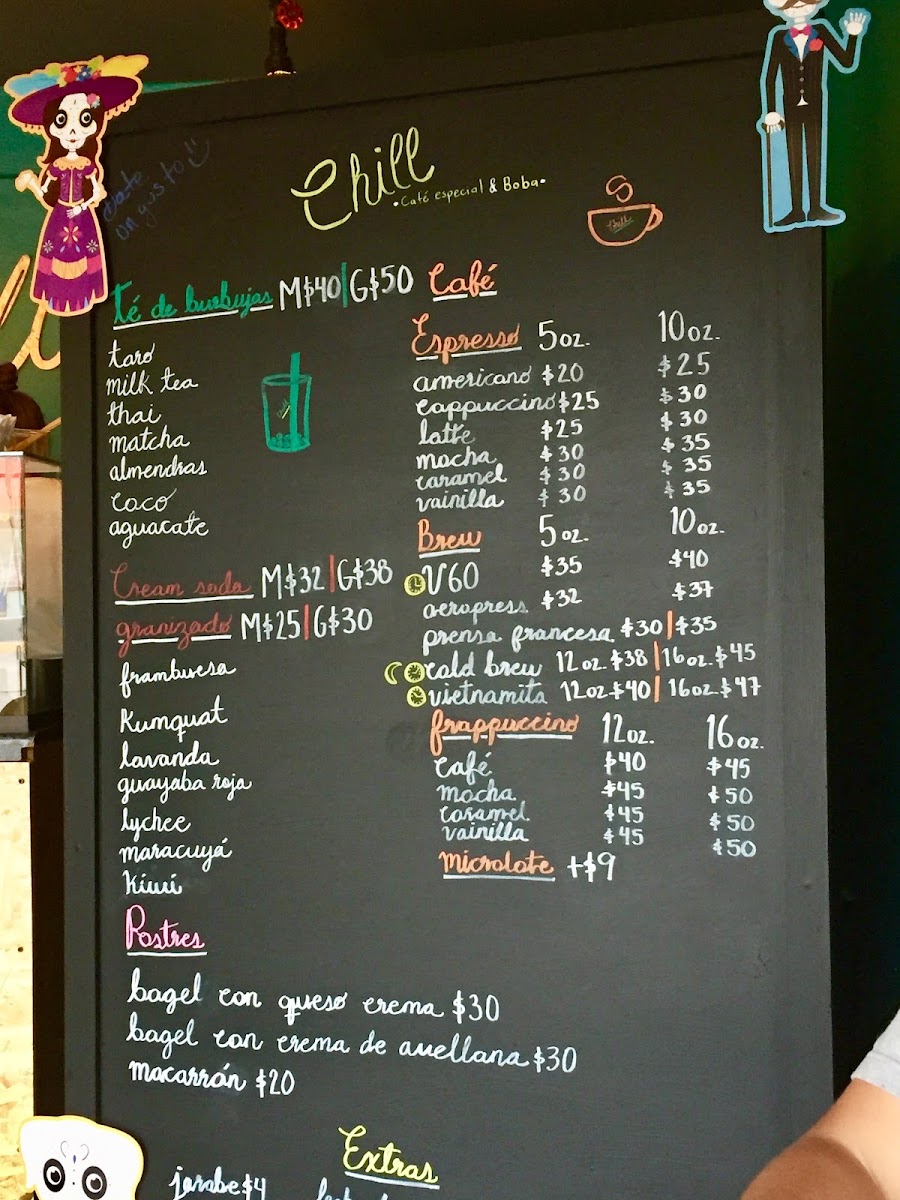 Chill
•Café especial & Boba•
Chill
té de burbujas M$40|G$50
taro
milk tea
thai
matcha
almendras
coco
aguacate
Cream soda M$32|G$38
granizado M$25|G$30
frambuesa
Kumquat
lavanda
guayaba roja
lychee
maracuyá
Kiwi
Postres
bagel con queso crema $30
bagel con crema de avellana $30
macarrón $20
Café
Espresso 5oz. 10oz.
americano $20 $25
cappuccino $25 $30
latte $25 $30
mocha $30 $35
caramel $30 $35
vainilla $30 $35
Brew 5oz. 10oz.
V60 $35 $40
aeropress $32 $37
prensa francesa $30|$35
cold brew 12oz $38|16oz.$45
vietnamita 12oz $40|16oz $47
frappuccino 12oz. 16oz.
café $40 $45
mocha $45 $50
caramel $45 $50
vainilla $45 $50
microlote +$9
Extras
jarabe $4